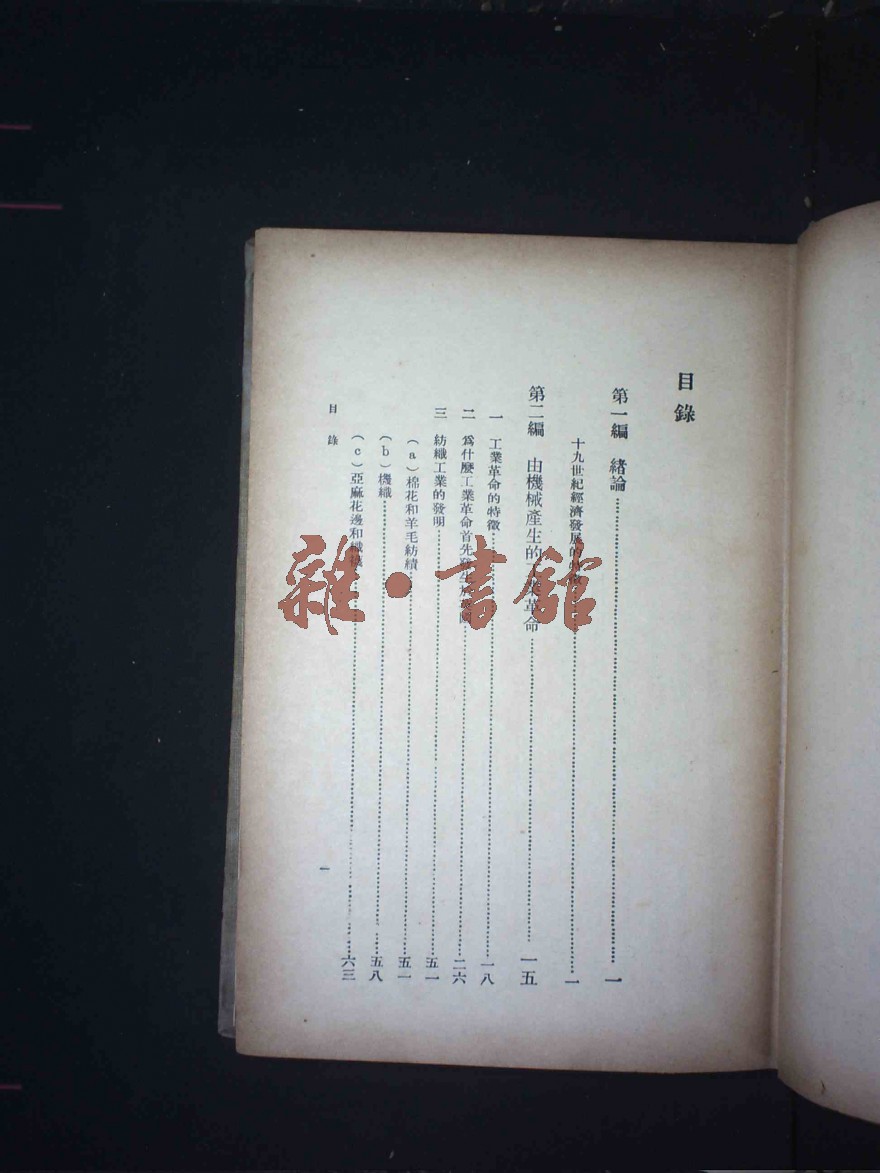 目錄
第一編 緒論……一
十九世紀經濟發展的特徵……一
第二編 由機械產生的工業革命……一五
一 工業革命的特徵……一八
二 爲什麼工業革命首先發生於英國……二六
三 紡織工業的發明……五一
(a)棉花和羊毛紡績……五一
(b)機織……五八
(c)亞麻花邊和織……六三
目錄
一
雜·書館